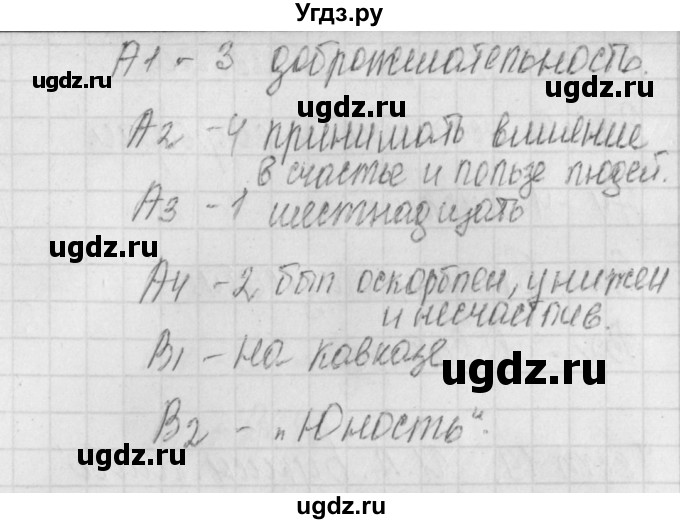 Угдз.ру
А1 - 3 доброжелательность.
ugdz.ru ugdz.ru ugdz.ru
А2 - 4 принимать влияние
в счастье и пользе людей.
ugdz.ru
А3 - 1 шестнадцать
ugdz.ru ugdz.ru
А4 - 2 был оскорблен, унижен
и несчастлив.
ugdz.ru
В1 - На кавказе
ugdz.ru
В2 - „Юность“.
ugdz.ru ugdz.ru
ugdz.ru